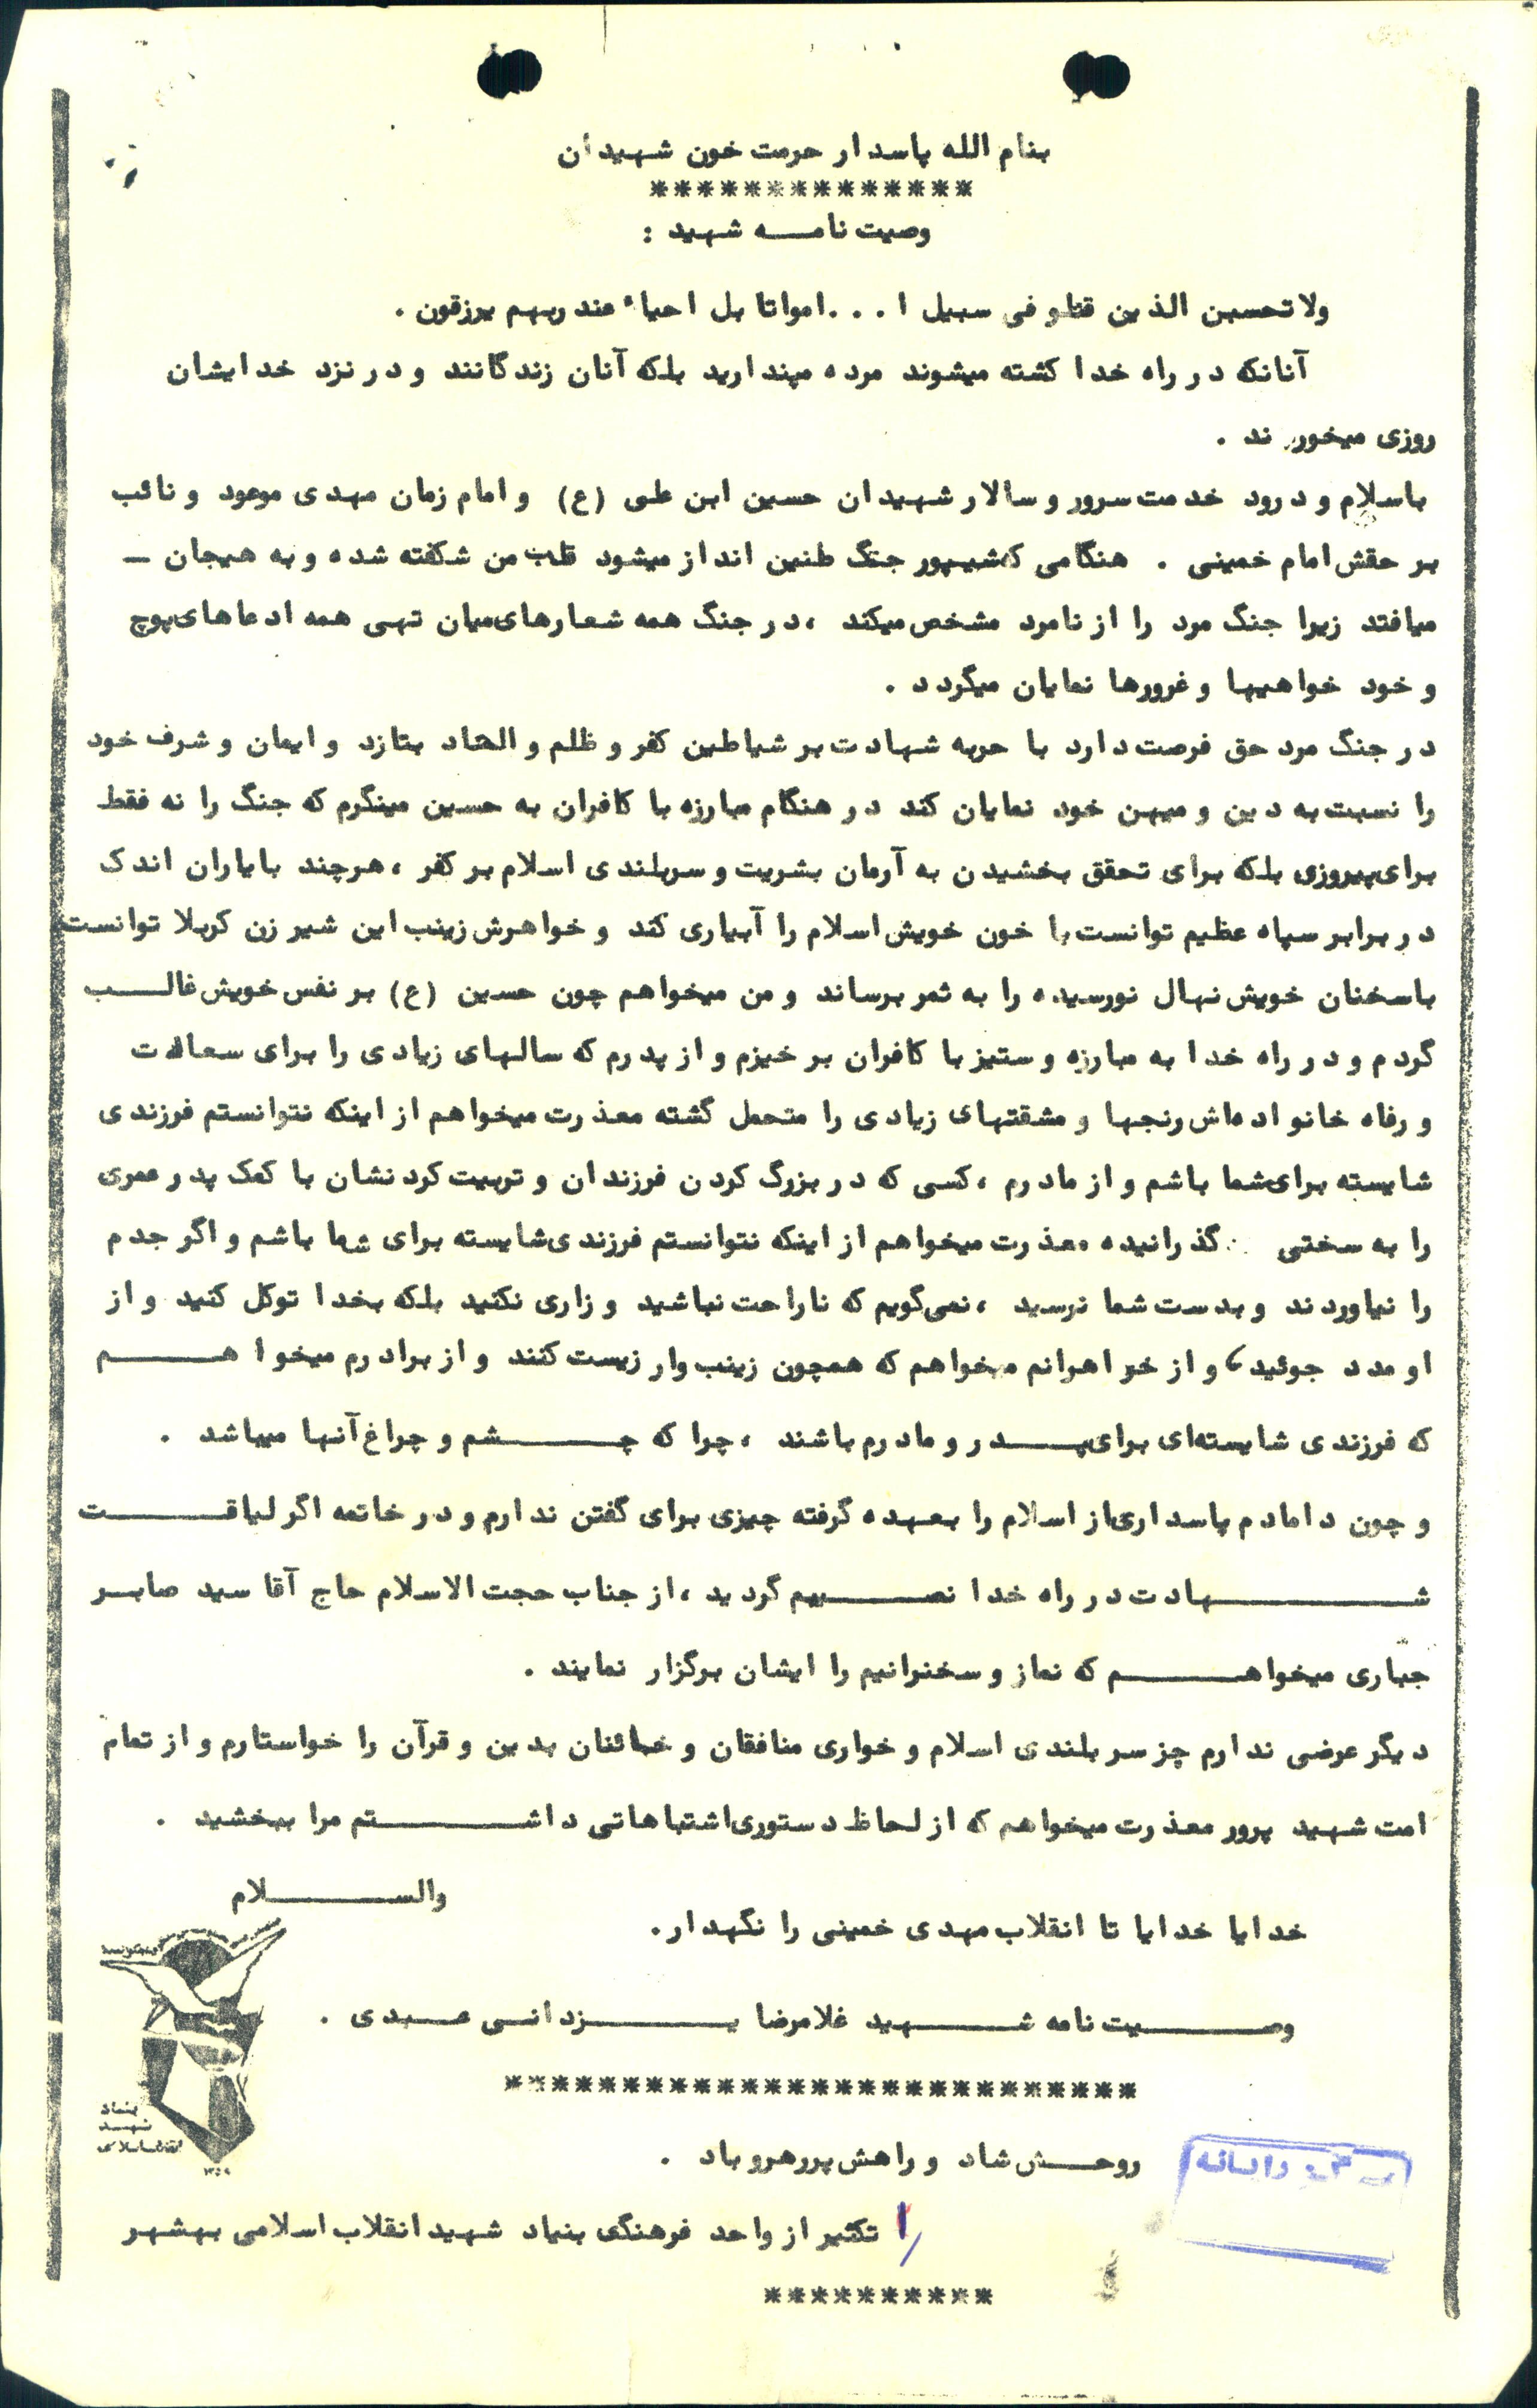 بنام الله پاسدار حرمت خون شهیدان
**************
وصیت نامه شهید :
ولاتحسبن الذین قتلو فی سبیل ا . . .امواتا بل احیاء عند ربهم یرزقون .
آنانکه در راه خدا کشته میشوند مرده مپندارید بلکه آنان زندگانند و در نزد خدایشان
روزی میخورند .
باسلام و درود خدمت سرور و سالار شهیدان حسین ابن علی (ع) و امام زمان مهدی موعود و نائب
بر حقش امام خمینی . هنگامی که شیپور جنگ طنین انداز میشود قلب من شکفته شده و به هیجان -
میافتد زیرا جنگ مرد را از نامرد مشخص میکند ، در جنگ همه شعارهای میان تهی همه ادعاهای پوچ
و خود خواهیها و غرورها نمایان میگردد .
در جنگ مرد حق فرصت دارد با حربه شهادت بر شیاطین کفر و ظلم و الحاد بتازد و ایمان و شرف خود
را نسبت به دین و میهن خود نمایان کند در هنگام مبارزه با کافران به حسین مینگرم که جنگ را نه فقط
برای پیروزی بلکه برای تحقق بخشیدن به آرمان بشریت و سربلندی اسلام بر کفر ، هرچند بایاران اندک
در برابر سپاه عظیم توانست با خون خویش اسلام را آبیاری کند و خواهرش زینب این شیر زن کربلا توانست
باسخنان خویش نهال نورسیده را به ثمر برساند و من میخواهم چون حسین (ع) بر نفس خویش غالب
گردم و در راه خدا به مبارزه و ستیز با کافران بر خیزم و از پدرم که سالهای زیادی را برای سعادت
و رفاه خانواده‌اش رنجها و مشقتهای زیادی را متحمل گشته معذرت میخواهم از اینکه نتوانستم فرزندی
شایسته برای شما باشم و از مادرم ، کسی که در بزرگ کردن فرزندان و تربیت کردنشان با کمک پدر عمری
را به سختی گذرانیده معذرت میخواهم از اینکه نتوانستم فرزندی شایسته برای شما باشم و اگر جدم
را نیاوردند و بدست شما نرسید ، نمی‌گویم که ناراحت نباشید و زاری نکنید بلکه بخدا توکل کنید و از
او مدد جوئید ، و از خواهرانم میخواهم که همچون زینب وار زیست کنند و از برادرم میخواهم
که فرزندی شایسته‌ای برای پدر و مادرم باشند ، چرا که چشم و چراغ آنها میباشد .
و چون دامادم پاسداری از اسلام را بعهده گرفته چیزی برای گفتن ندارم و در خاتمه اگر لیاقت
شهادت در راه خدا نصیبم گردید ، از جناب حجت الاسلام حاج آقا سید صابر
جباری میخواهم که نماز و سخنرانیم را ایشان برگزار نمایند .
دیگر عرضی ندارم چز سر بلندی اسلام و خواری منافقان و خائنان بدین و قرآن را خواستارم و از تمام
امت شهید پرور معذرت میخواهم که از لحاظ دستوری اشتباهاتی داشتم مرا ببخشید .
والسلام
خدایا خدایا تا انقلاب مهدی خمینی را نگهدار .
وصیت نامه شهید غلامرضا یزدانی عبدی .
***************************
بنیاد
شهید
انقلاب اسلامی
روحش شاد و راهش پررهرو باد .
تکثیر از واحد فرهنگی بنیاد شهید انقلاب اسلامی بهشهر
**********